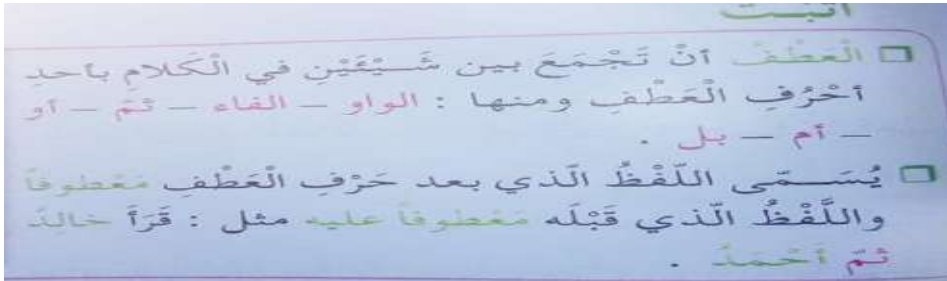 أثبت
الْعَطْفُ أنْ تَجْمَعَ بين شَـيْئَيْنِ في الْكَلامِ بأحدِ
أحْرُفِ الْعَطْفِ ومنها : الواو – الفاء – ثمّ – أو
– أم – بل .
يُسَـــمّى اللّفْظُ الّذي بعد حَرْفِ الْعَطْفِ مَعْطوفاً
واللَّفْظُ الّذي قَبْلَه مَعْطوفاً عليه مثل : قَرَأَ خالِدٌ
ثمّ أحْمَدُ .